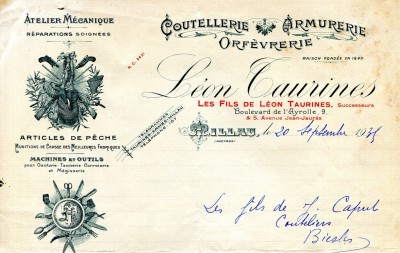 ATELIER MÉCANIQUE
RÉPARATIONS SOIGNÉES
COUTELLERIE ARMURERIE
ORFÈVRERIE
MAISON FONDÉE EN 1840
R.C. 3431
Léon Taurines
LES FILS DE LÉON TAURINES, Successeurs
Boulevard de l'Ayrolle, 9
& 5, Avenue Jean-Jaurès
MILLAU, le 20 Septembre
(AVEYRON)
ARTICLES DE PÊCHE
MUNITIONS DE CHASSE DES MEILLEURES FABRIQUES
MACHINES ET OUTILS
pour Ganterie-Tannerie-Corroterie
et Mégisserie
Les fils de J. Caput
Couteliers
Biesles